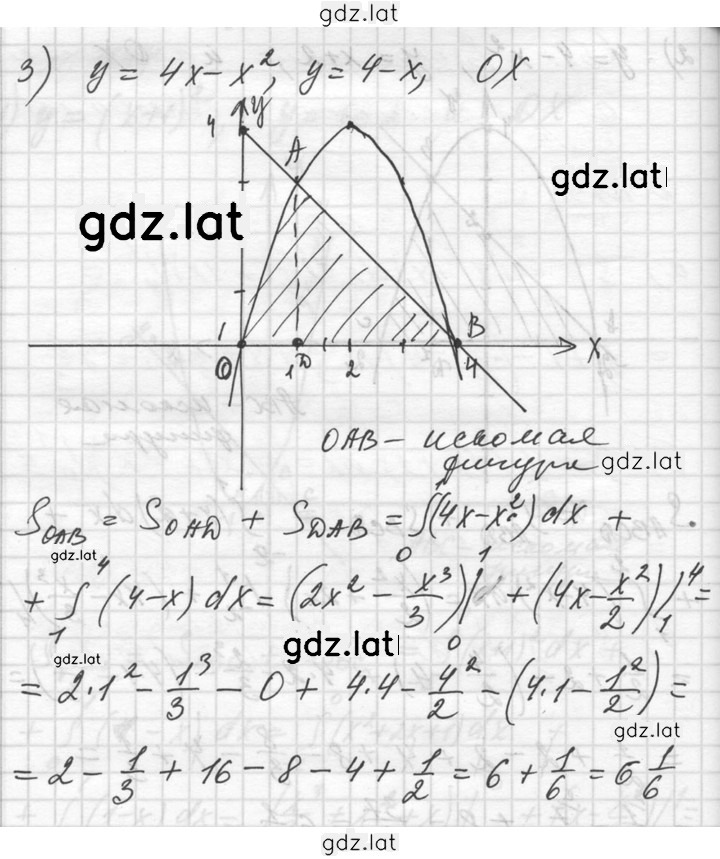 gdz.lat
3) y = 4x - x², y = 4 - x, OX
y
4
A
gdz.lat
gdz.lat
1
B
O
1
D
2
4
X
OAB - искомая
фигура
gdz.lat
S_OAB = S_OAD + S_DAB = ∫₀¹(4x - x²) dx +
gdz.lat
+ ∫₁⁴ (4 - x) dx = (2x² - x³/3)|₀¹ + (4x - x²/2)|₁⁴ =
gdz.lat
gdz.lat
= 2·1² - 1³/3 - 0 + 4·4 - 4²/2 - (4·1 - 1²/2) =
gdz.lat
= 2 - 1/3 + 16 - 8 - 4 + 1/2 = 6 + 1/6 = 6 1/6
gdz.lat